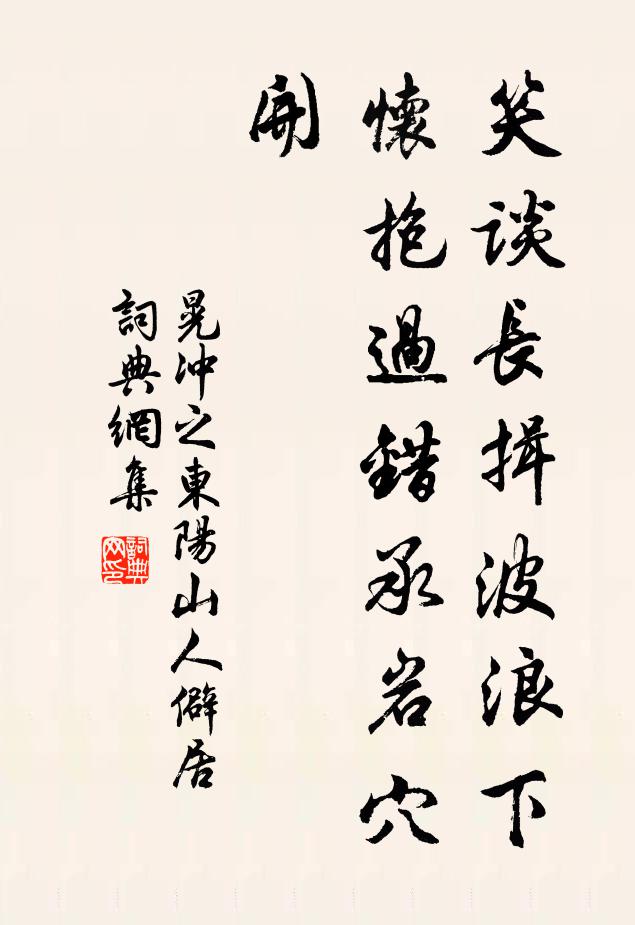 笑談長揖波浪下
懷抱過錯承岩穴
開
晃沖之東陽山人僻居
詞典網集
詞典网印